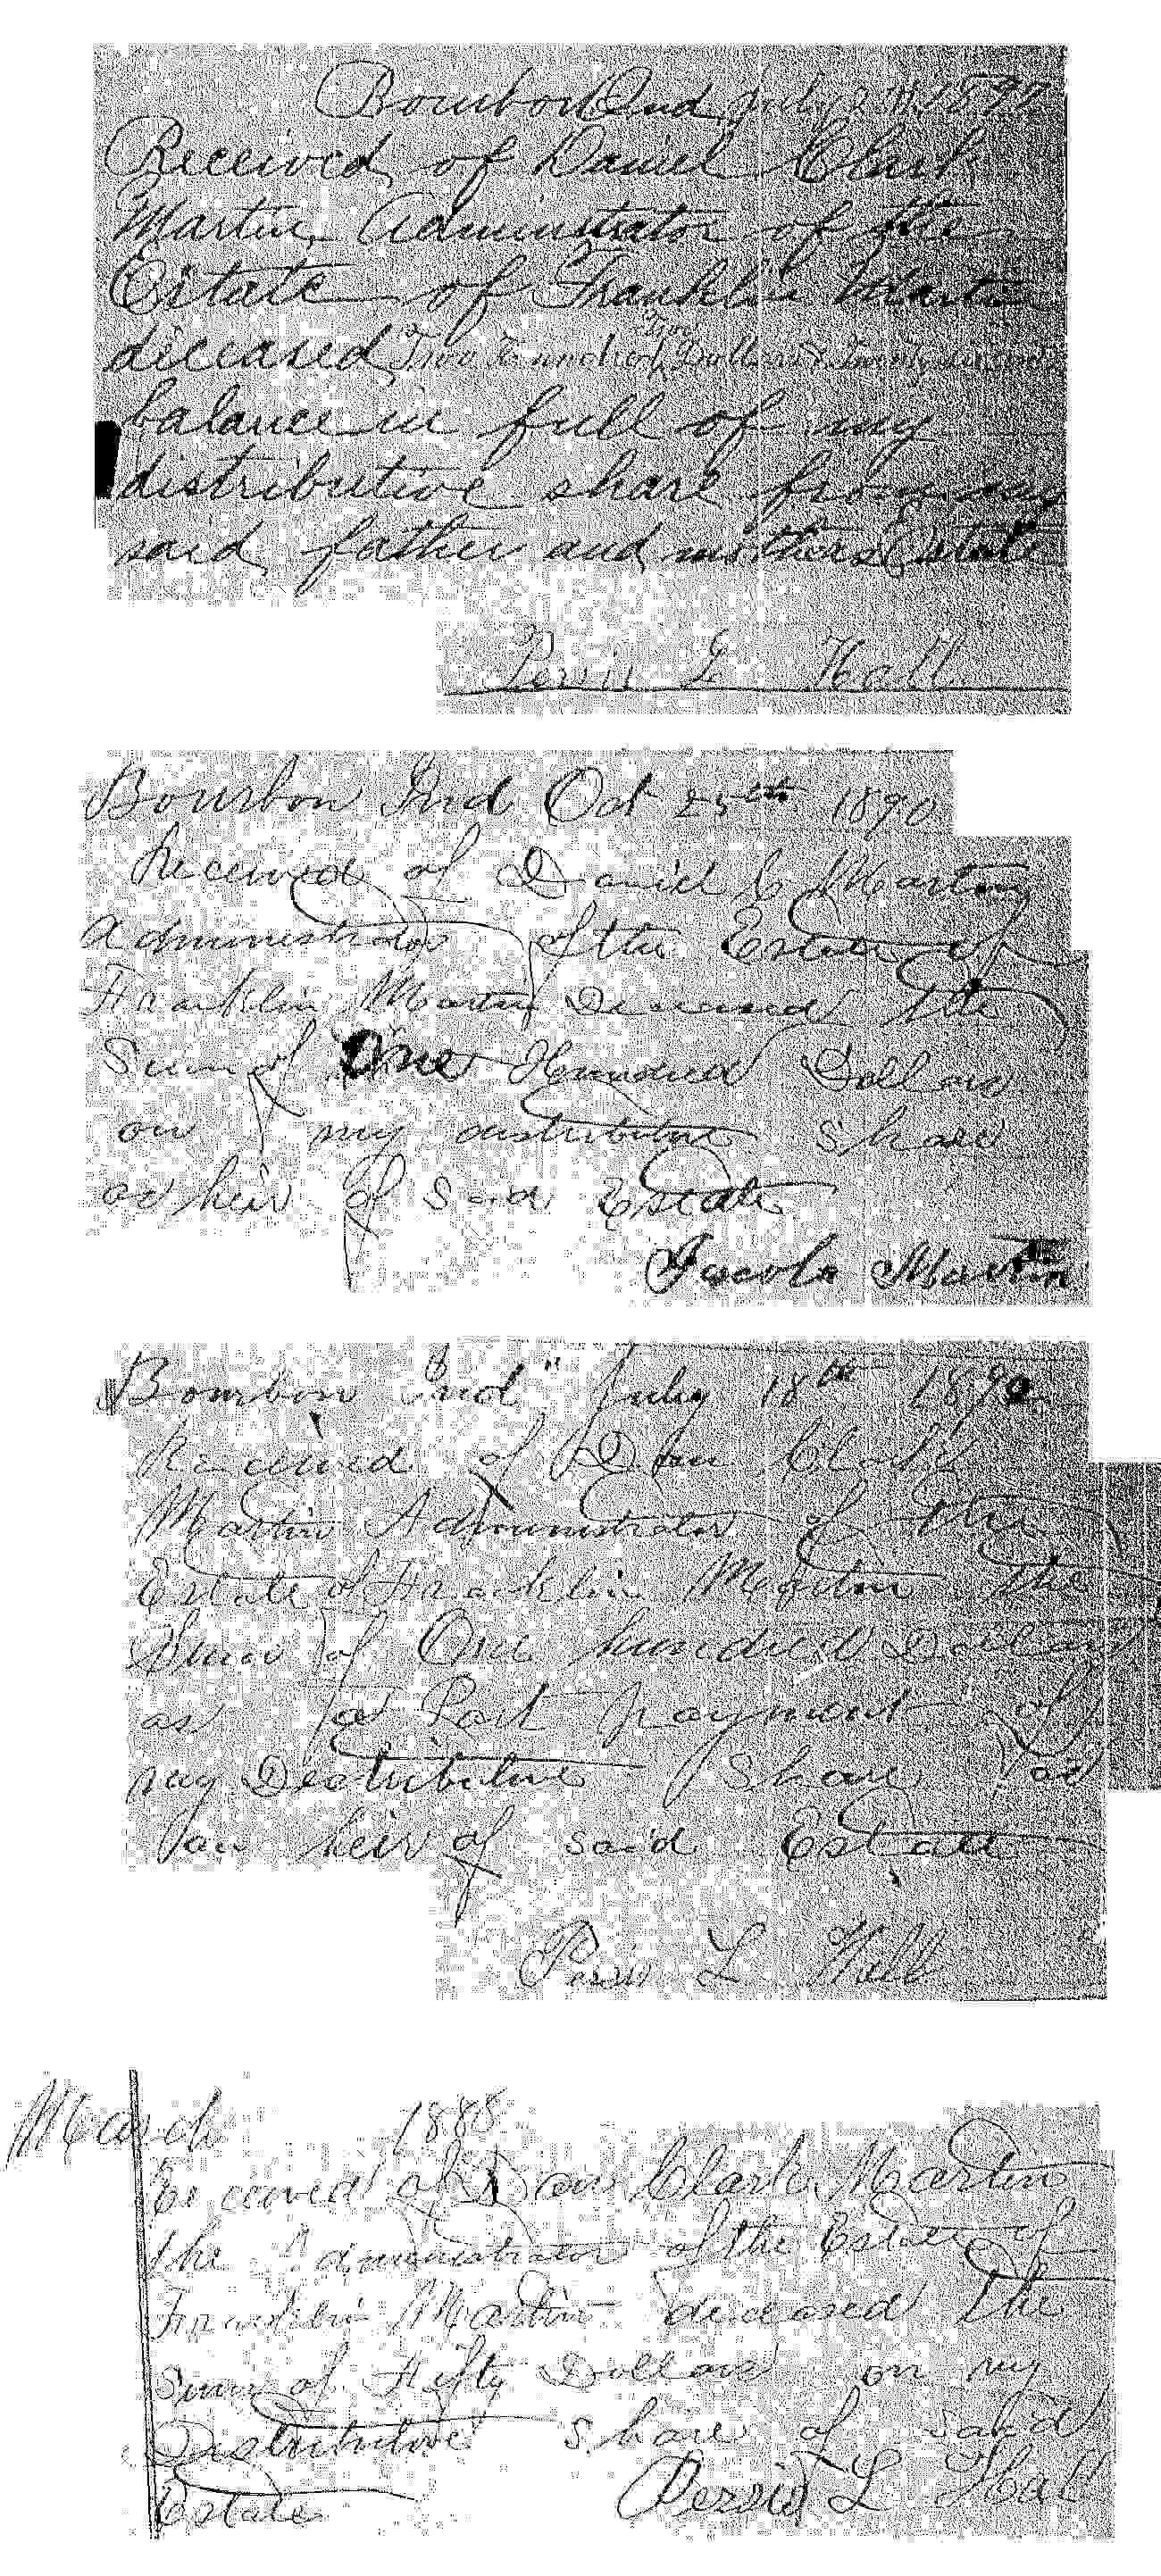 Bourbon Ind July 1891
Received of Daniel Clark
Martin Administrator of the
Estate of Franklin Martin
deceased Two Hundred Dollars
balance in full of my
distributive share from my
said father and mothers Estate
L Hall
Bourbon Ind Oct 25th 1890
Received of Daniel C Martin
Administrator of the Estate of
Franklin Martin Deceased the
Sum of One Hundred Dollars
on my distributive share
as heir of Said Estate
Jacob Martin
Bourbon Ind July 18th 1890
Received of Dan Clark
Martin Administrator of the
Estate of Franklin Martin the
Sum of One hundred Dollars
as a Part Payment of
my Distributive Share as
an heir of said Estate
Persis L Hall
March 1888
Received of Dan Clark Martin
the Administrator of the Estate of
Franklin Martin deceased the
Sum of Fifty Dollars on my
Distributive Share of Said
Estate Persis L Hall